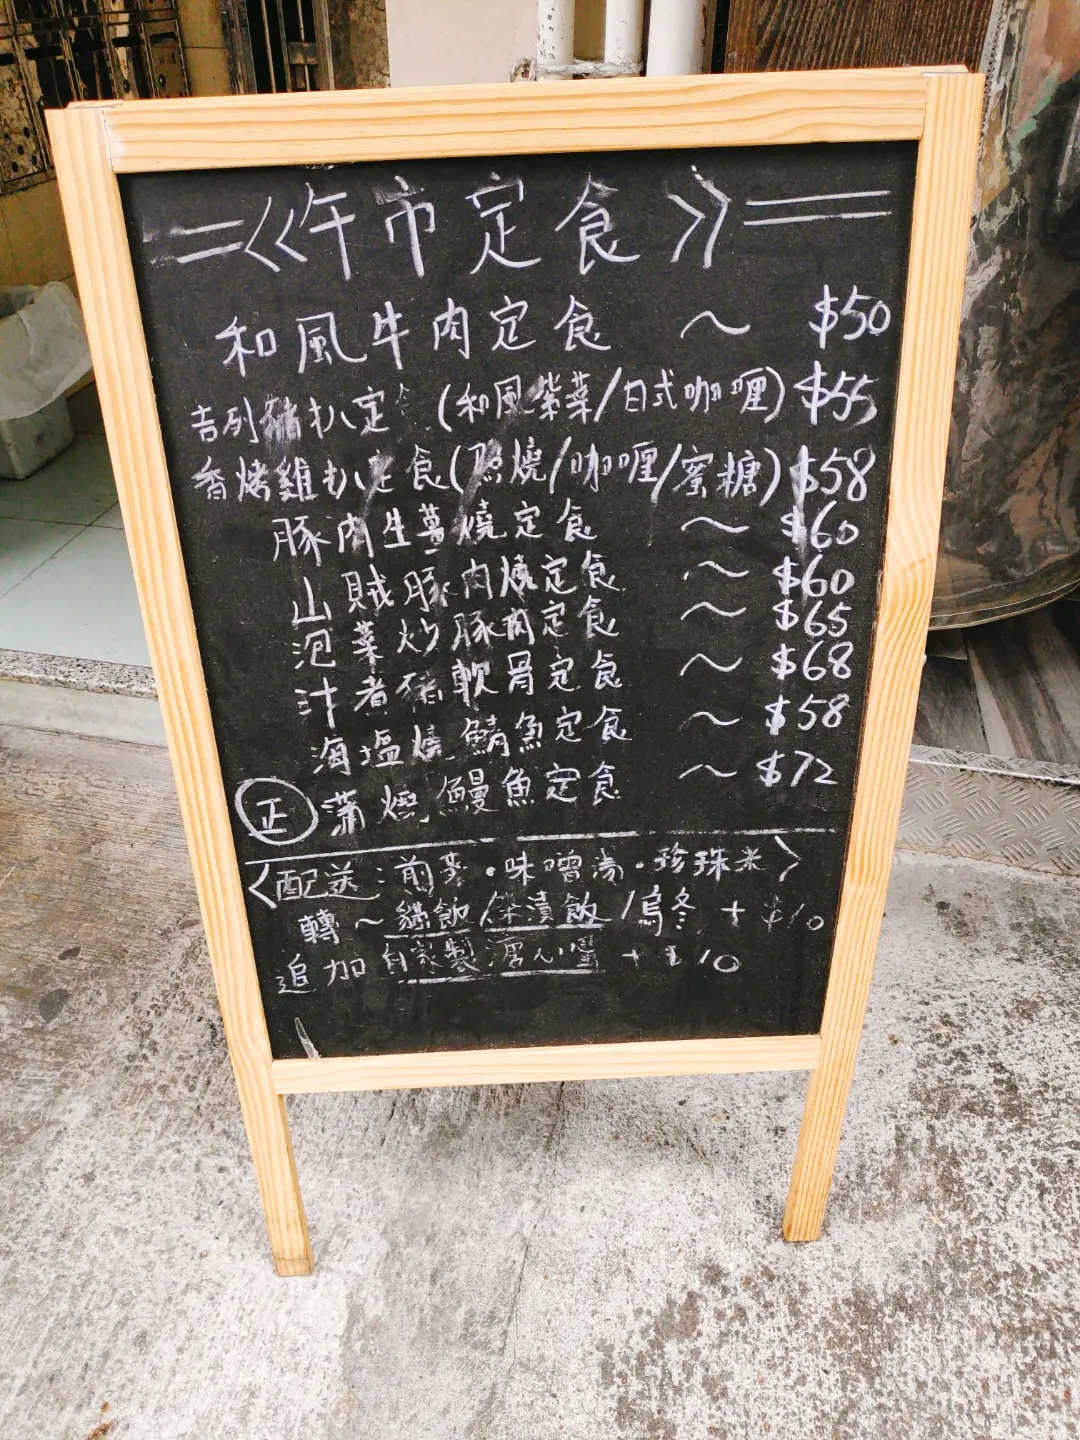 《午市定食》
和風牛肉定食 ～ $50
吉列豬扒定食(和風紫菜/日式咖喱) $55
香烤雞扒定食(照燒/咖喱/蜜糖) $58
豚肉生薑燒定食 ～ $60
山賊豚肉燒定食 ～ $60
泡菜炒豚肉定食 ～ $65
汁煮豬軟骨定食 ～ $68
海塩燒鯖魚定食 ～ $58
正 蒲燒鰻魚定食 ～ $72
〈配送:前菜・味噌湯・珍珠米〉
轉～貓飯/茶漬飯/烏冬 + $10
追加自家製溏心蛋 + $10